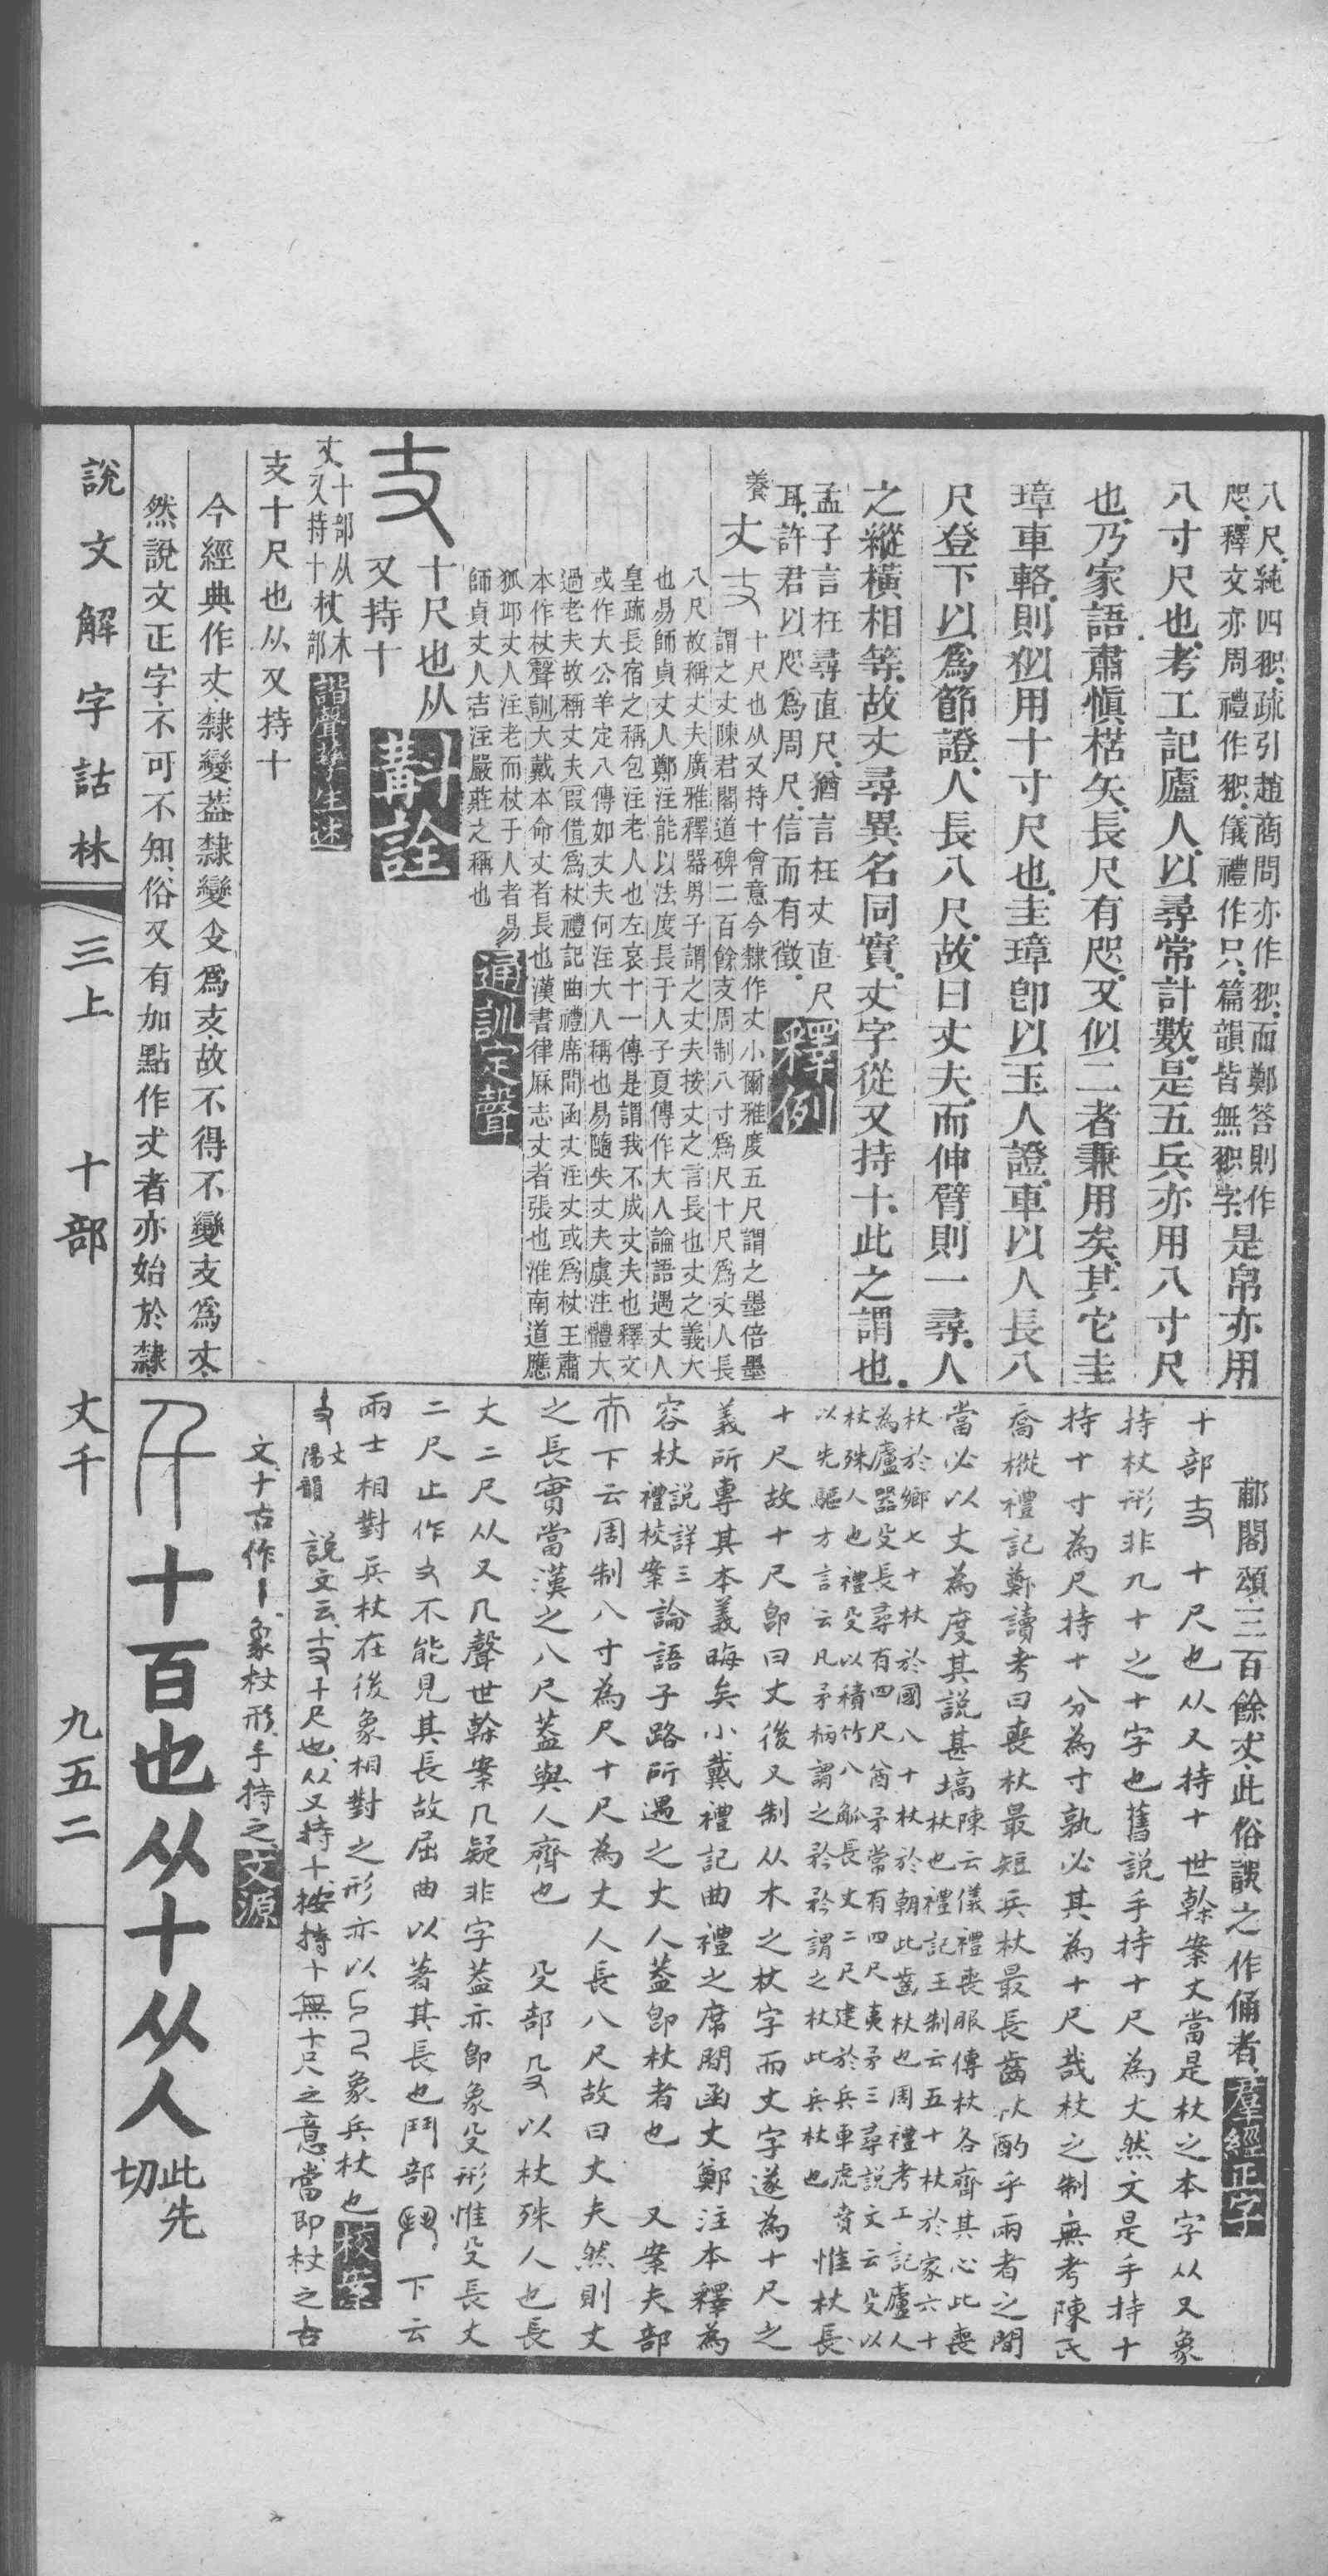 八尺純四䄷疏引趙商問亦作䄷而鄭答則作
咫釋文亦周禮作䄷儀禮作只篇韻皆無䄷字是帛亦用
八寸尺也考工記廬人以尋常計數是五兵亦用八寸尺
也乃家語肅慎楛矢長尺有咫又似二者兼用矣其它圭
璋車輅則似用十寸尺也圭璋卽以玉人證車以人長八
尺登下以爲節證人長八尺故曰丈夫而伸臂則一尋人
之縱橫相等故丈尋異名同實丈字從又持十此之謂也
孟子言枉尋直尺猶言枉丈直尺
耳許君以咫爲周尺信而有徵 釋例
養 丈 支
十尺也从又持十會意今隸作丈小爾雅度五尺謂之墨倍墨
謂之丈陳君閣道碑二百餘支周制八寸爲尺十尺爲丈人長
八尺故稱丈夫廣雅釋器男子謂之丈夫按丈之言長也丈之義大
也易師貞丈人鄭注能以法度長于人子夏傳作大人論語遇丈人
皇疏長宿之稱包注老人也左哀十一傳是謂我不成丈夫也釋文
或作大公羊定八傳如丈夫何注大人稱也易隨失丈夫虞注體大
過老夫故稱丈夫叚借爲杖禮記曲禮席問函丈注丈或爲杖王肅
本作杖聲訓大戴本命丈者長也漢書律厤志丈者張也淮南道應
狐邱丈人注老而杖于人者易
師貞丈人吉注嚴莊之稱也 通訓定聲
支 十尺也从
又持十 斠詮
丈 十部从木
又持十杖部 諧聲孳生述
支十尺也从又持十
今經典作丈隸變葢隸變𠬛爲支故不得不變支爲丈
然說文正字不可不知俗又有加點作𠀋者亦始於隸
郙閣頌三百餘𠀋此俗誤之作俑者 羣經正字
十部支十尺也从又持十世榦案丈當是杖之本字从又象
持杖形非九十之十字也舊說手持十尺為丈然文是手持十
持十寸為尺持十分為寸孰必其為十尺哉杖之制無考陳氏
喬樅禮記鄭讀考曰喪杖最短兵杖最長齒杖酌乎兩者之間
當必以丈為度其說甚塙 陳云儀禮喪服傳杖各齊其心此喪
杖也禮記王制云五十杖於家六十
杖於鄉七十杖於國八十杖於朝此齒杖也周禮考工記廬人
為廬器殳長尋有四尺酋矛常有四尺夷矛三尋說文云殳以
杖殊人也禮殳以積竹八觚長丈二尺建於兵車虎賁
以先驅方言云凡矛柄謂之矜矜謂之杖此兵杖也 惟杖長
十尺故十尺卽曰丈後又制从木之杖字而丈字遂為十尺之
義所專其本義晦矣小戴禮記曲禮之席閒函丈鄭注本釋為
容杖 說詳三
禮校案 論語子路所遇之丈人葢卽杖者也 又案夫部
夫下云周制八寸為尺十尺為丈人長八尺故曰丈夫然則丈
之長實當漢之八尺葢與人齊也 殳部殳以杖殊人也長
丈二尺从又几聲世榦案几疑非字葢亦卽象殳形惟殳長丈
二尺止作殳不能見其長故屈曲以著其長也鬥部鬥下云
兩士相對兵杖在後象相對之形亦以象兵杖也 校案
丈
陽韻 說文云支十尺也从又持十按持十無十尺之意當即杖之古
文十古作丨象杖形手持之 文源
千 十百也从十从人 此先
切
說文解字詁林 三上 十部 丈千 九五二